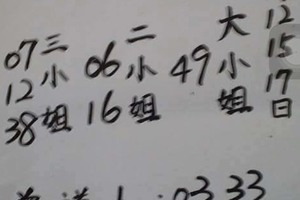 12 15 17日
大小姐
49
二小姐
06 16
三小姐
07 12 38
03 33